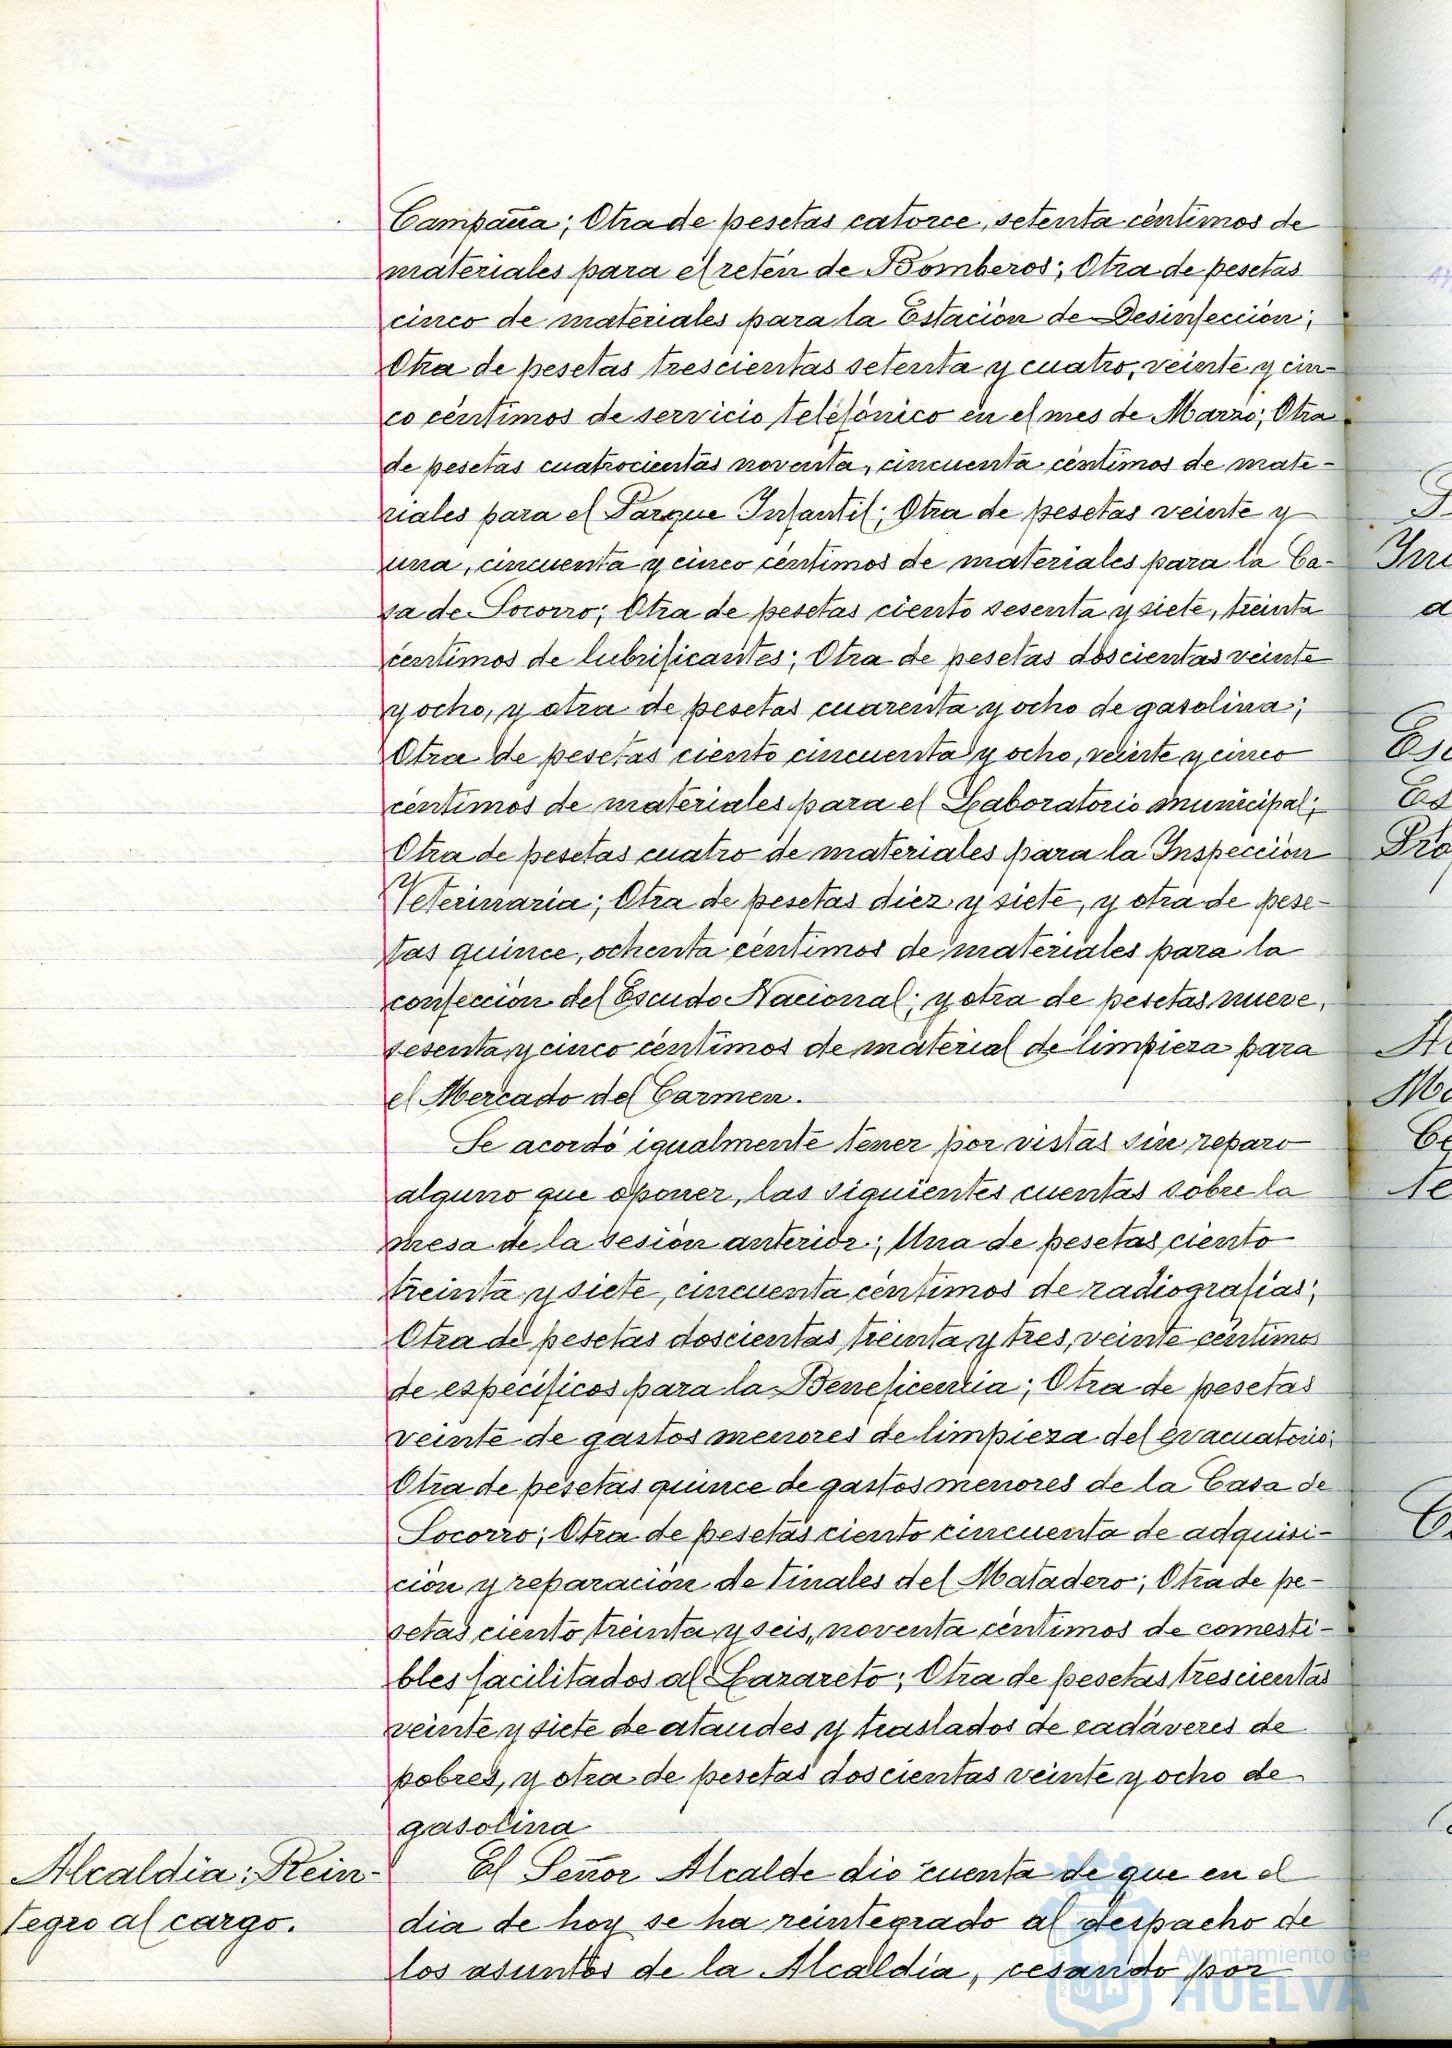 Campaña; Otra de pesetas catorce, setenta céntimos de
materiales para el retén de Bomberos; Otra de pesetas
cinco de materiales para la Estación de Desinfección;
Otra de pesetas trescientas setenta y cuatro, veinte y cin-
co céntimos de servicio telefónico en el mes de Marzo; Otra
de pesetas cuatrocientas noventa, cincuenta céntimos de mate-
riales para el Parque Infantil; Otra de pesetas veinte y
una, cincuenta y cinco céntimos de materiales para la Ca-
sa de Socorro; Otra de pesetas ciento sesenta y siete, treinta
céntimos de lubrificantes; Otra de pesetas doscientas veinte
y ocho, y otra de pesetas cuarenta y ocho de gasolina;
Otra de pesetas ciento cincuenta y ocho, veinte y cinco
céntimos de materiales para el Laboratorio municipal;
Otra de pesetas cuatro de materiales para la Inspección
Veterinaria; Otra de pesetas diez y siete, y otra de pese-
tas quince, ochenta céntimos de materiales para la
confección del Escudo Nacional; y otra de pesetas nueve,
sesenta y cinco céntimos de material de limpieza para
el Mercado del Carmen.
Se acordó igualmente tener por vistas sin reparo
alguno que oponer, las siguientes cuentas sobre la
mesa de la sesión anterior; Una de pesetas ciento
treinta y siete, cincuenta céntimos de radiografías;
Otra de pesetas doscientas treinta y tres, veinte céntimos
de específicos para la Beneficencia; Otra de pesetas
veinte de gastos menores de limpieza del evacuatorio;
Otra de pesetas quince de gastos menores de la Casa de
Socorro; Otra de pesetas ciento cincuenta de adquisi-
ción y reparación de tinales del Matadero; Otra de pe-
setas ciento treinta y seis, noventa céntimos de comesti-
bles facilitados al Lazareto; Otra de pesetas trescientas
veinte y siete de ataudes y traslados de cadáveres de
pobres, y otra de pesetas doscientas veinte y ocho de
gasolina
Alcaldía: Rein-
tegro al cargo.
El Señor Alcalde dio cuenta de que en el
dia de hoy se ha reintegrado al despacho de
los asuntos de la Alcaldía, cesando por
Ayuntamiento de
HUELVA